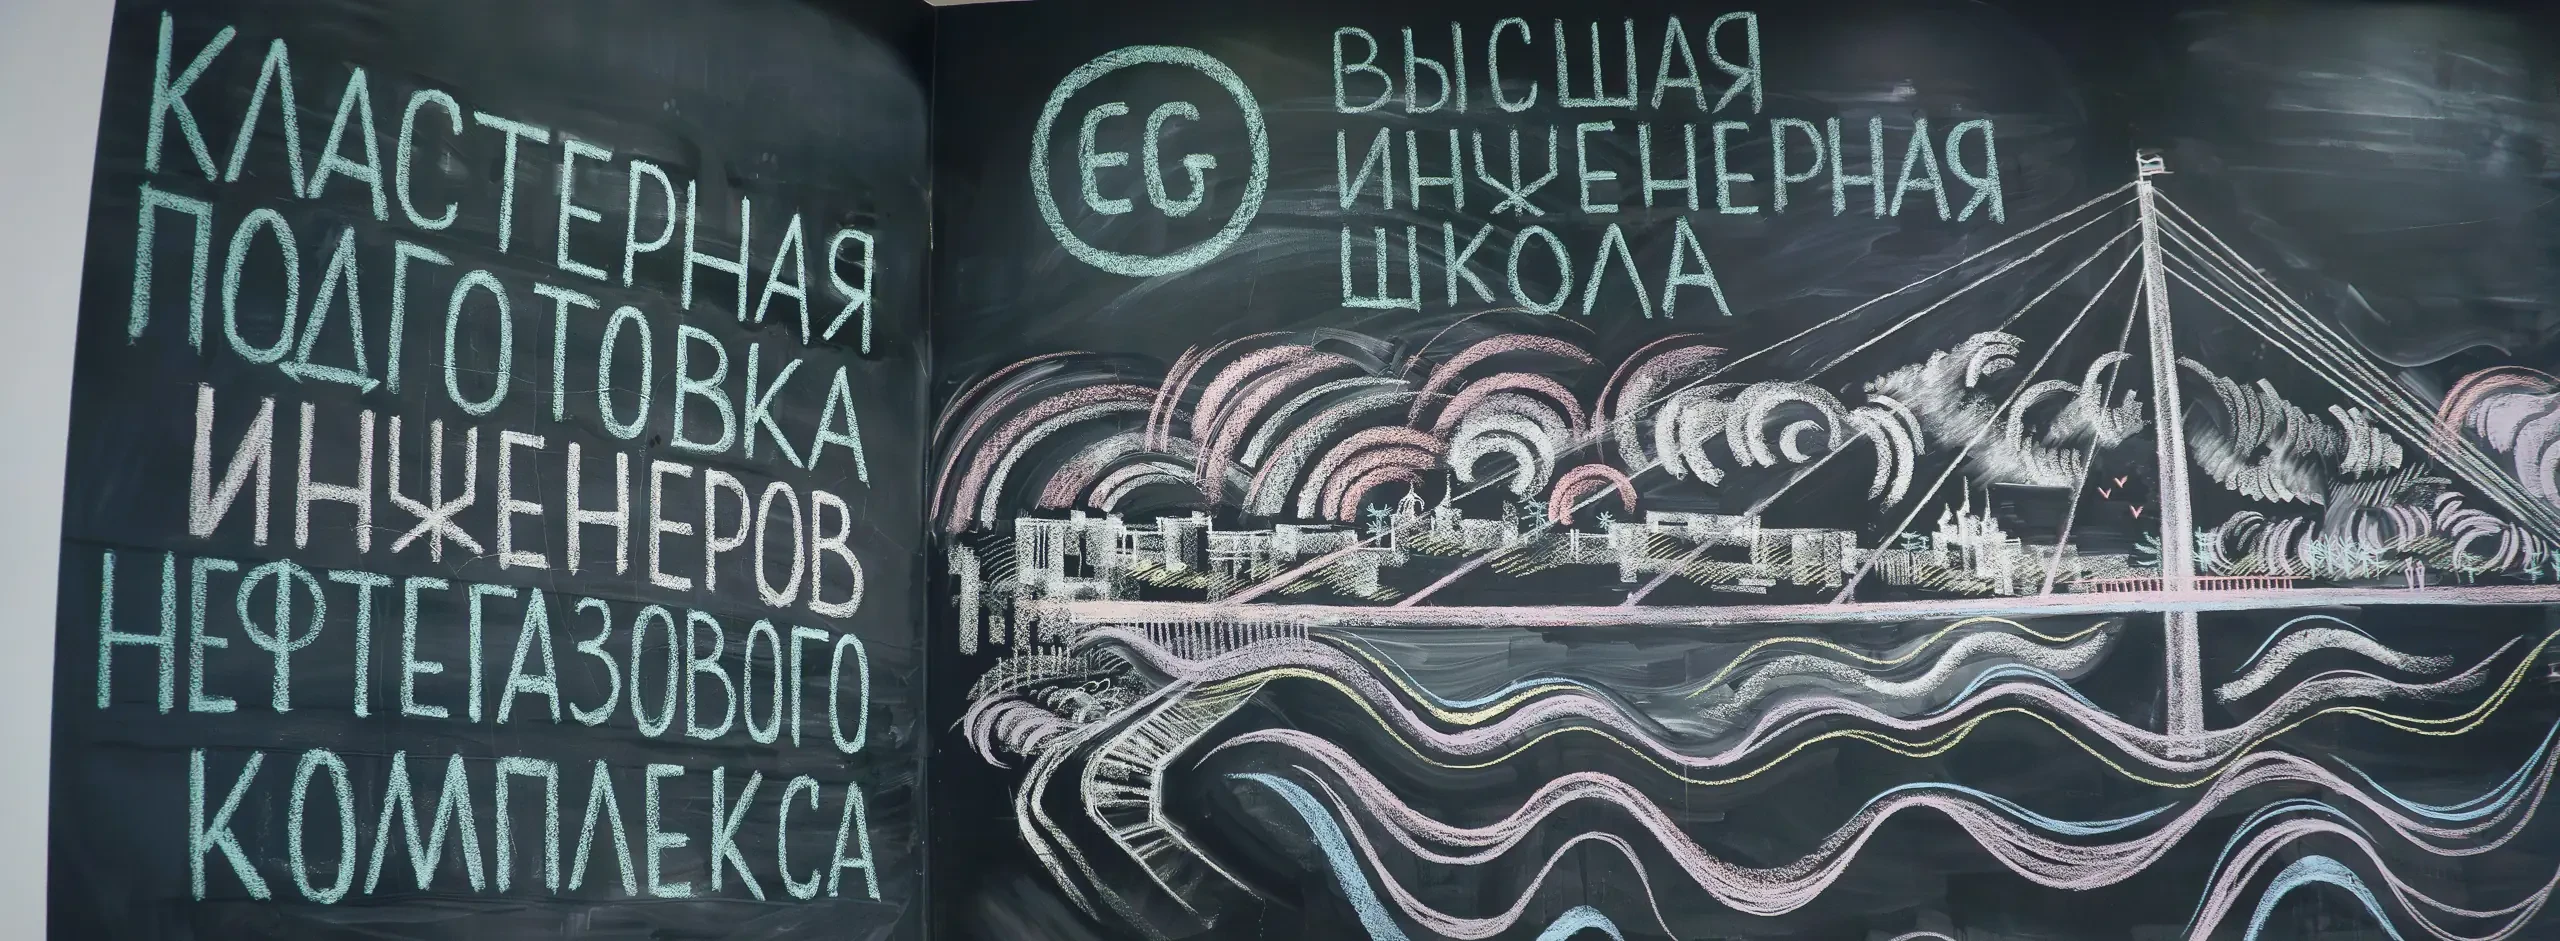 КЛАСТЕРНАЯ
ПОДГОТОВКА
ИНЖЕНЕРОВ
НЕФТЕГАЗОВОГО
КОМПЛЕКСА
EG
ВЫСШАЯ
ИНЖЕНЕРНАЯ
ШКОЛА